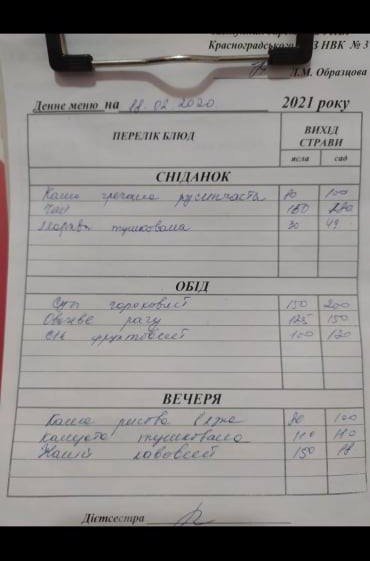 Красноградського З НВК № 3
Л.М. Образцова
Денне меню на 18.02.2020 2021 року
ПЕРЕЛІК БЛЮД ВИХІД СТРАВИ
ясла сад
СНІДАНОК
Каша гречана розсипчаста 80 100
Чай 150 200
Морква тушкована 30 49
ОБІД
Суп гороховий 150 200
Овочеве рагу 125 150
Сік фруктовий 100 120
ВЕЧЕРЯ
Каша рисова в'язка 80 100
капуста тушкована 110
Напій кавовий 150
Дієтсестра